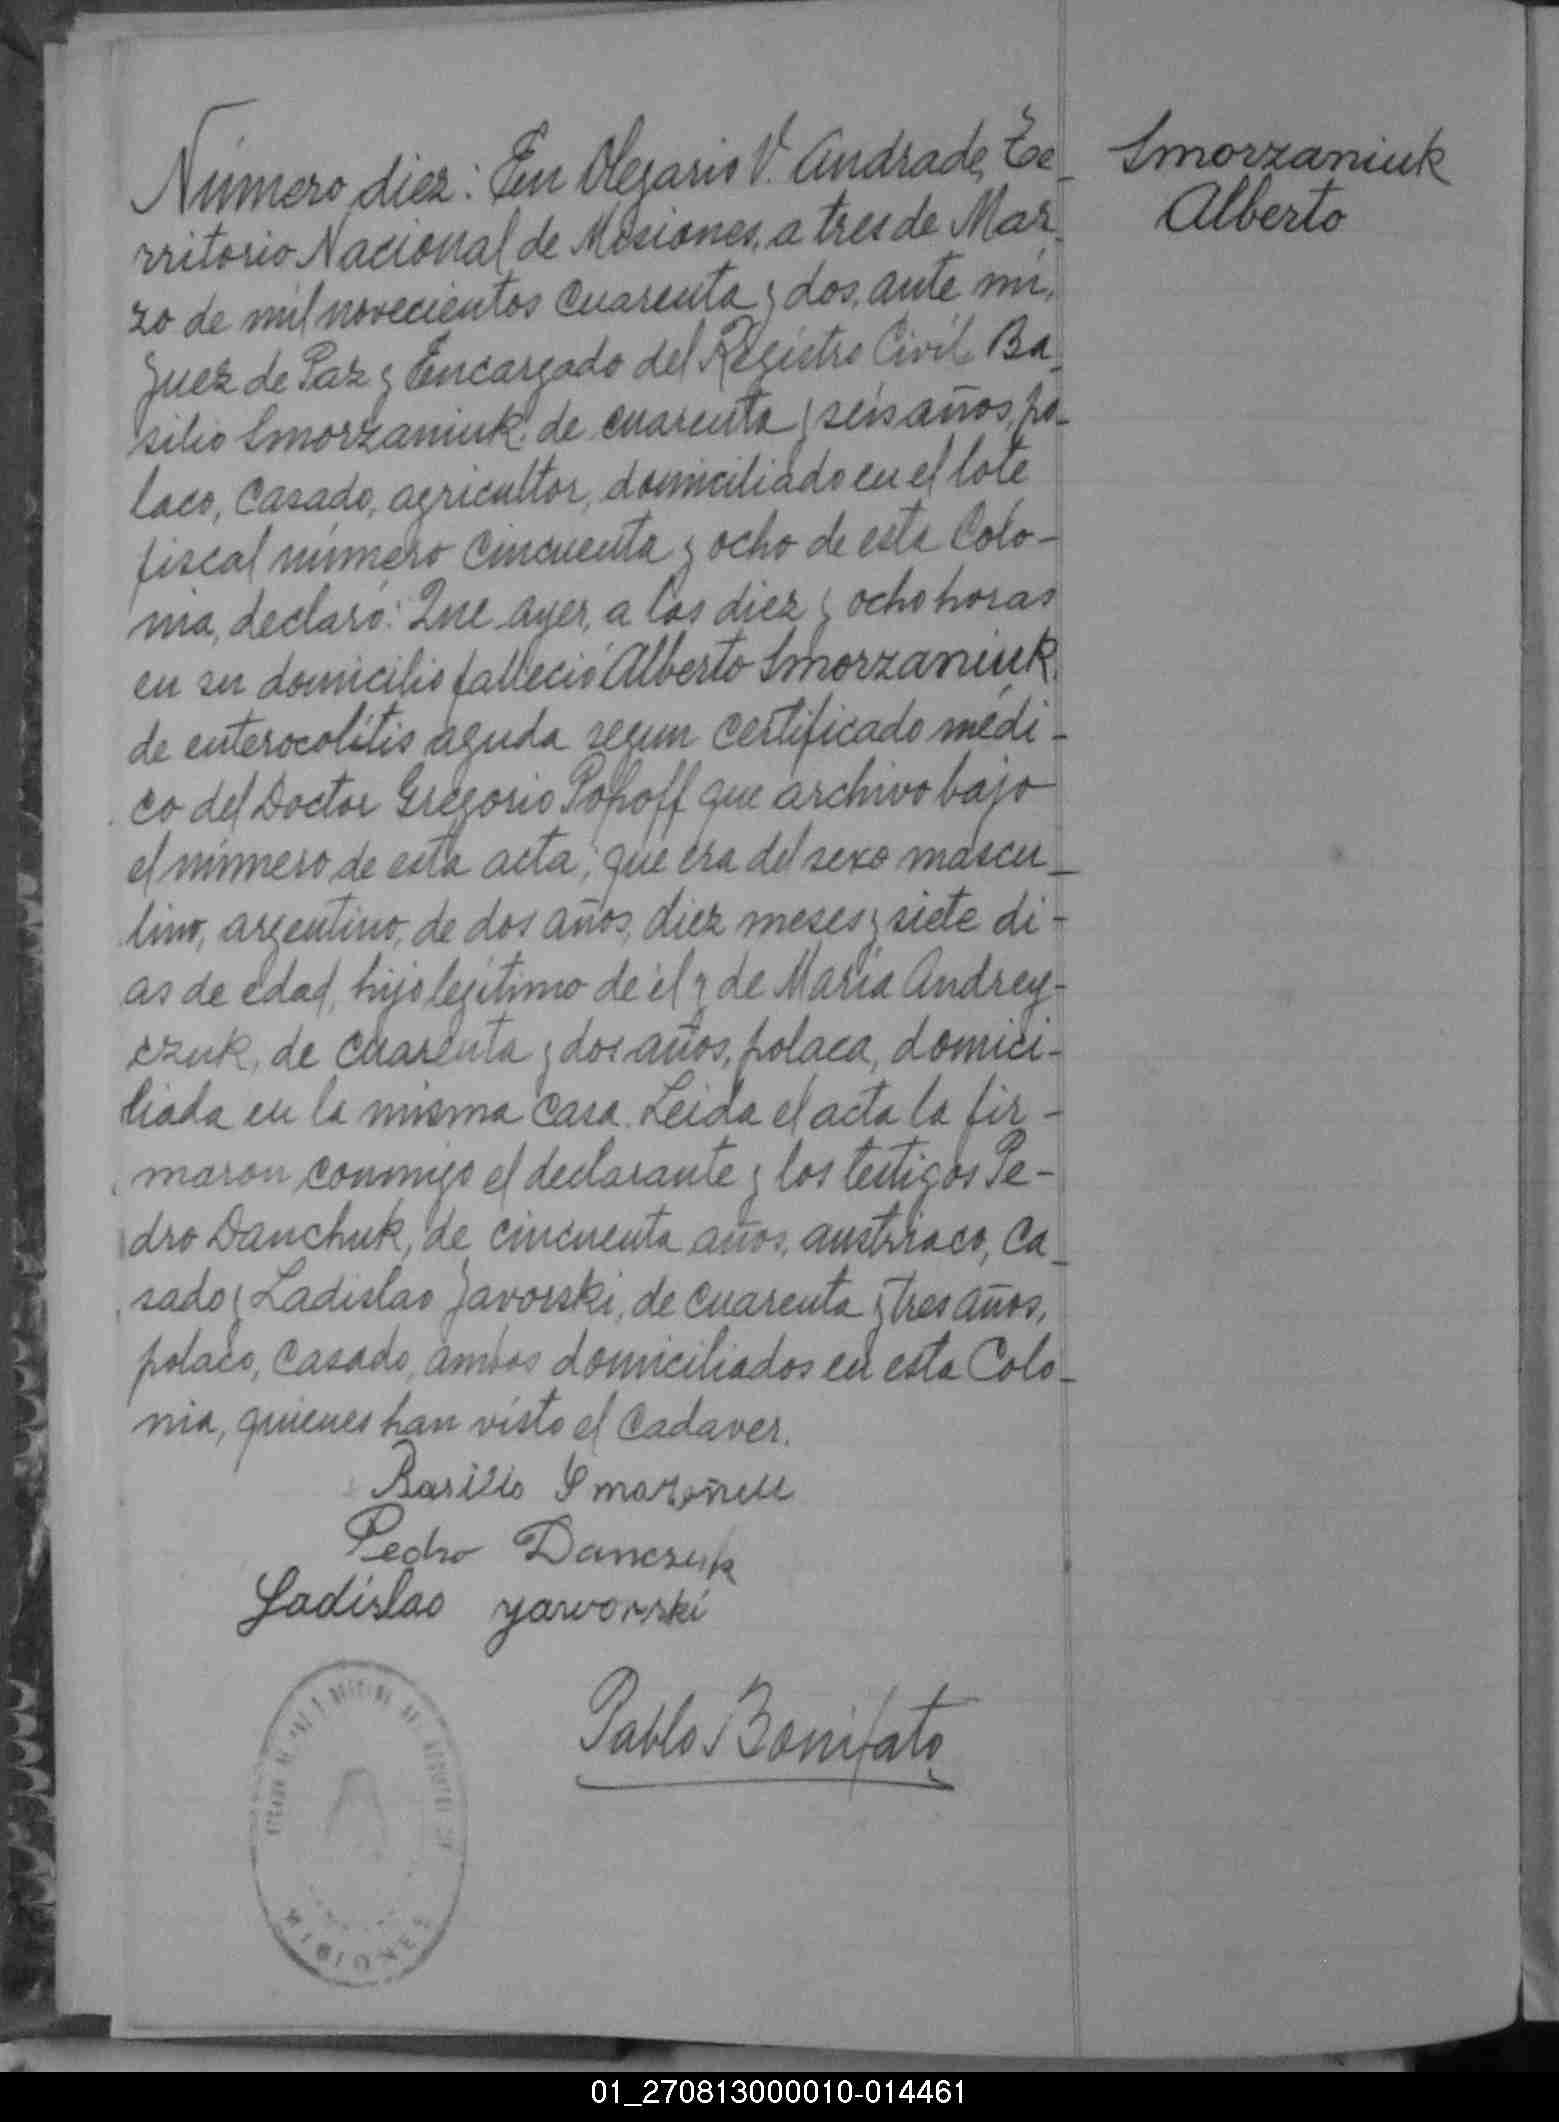 Número diez: En Olegario V. Andrade, Te-
rritorio Nacional de Misiones, a tres de Mar-
zo de mil novecientos cuarenta y dos, ante mi,
Juez de Paz y Encargado del Registro Civil Ba-
silio Smorzaniuk, de cuarenta y seis años, po-
laco, casado, agricultor, domiciliado en el lote
fiscal número cincuenta y ocho de esta Colo-
nia, declaró: Que ayer, a las diez y ocho horas
en su domicilio falleció Alberto Smorzaniuk,
de enterocolitis aguda segun certificado médi-
co del Doctor Gregorio Popoff que archivo bajo
el número de esta acta; que era del sexo mascu-
lino, argentino, de dos años, diez meses y siete di-
as de edad, hijo legítimo de él y de María Andrey-
czuk, de cuarenta y dos años, polaca, domici-
liada en la misma casa. Leida el acta la fir-
maron conmigo el declarante y los testigos Pe-
dro Danchuk, de cincuenta años, austriaco, ca-
sado y Ladislao Javorski, de cuarenta y tres años,
polaco, casado, ambos domiciliados en esta Colo-
nia, quienes han visto el cadaver.
Basilio
Pedro Danczuk
Ladislao yaworski
Pablo Bonifato
MISIONES
Smorzaniuk
Alberto
01_270813000010-014461